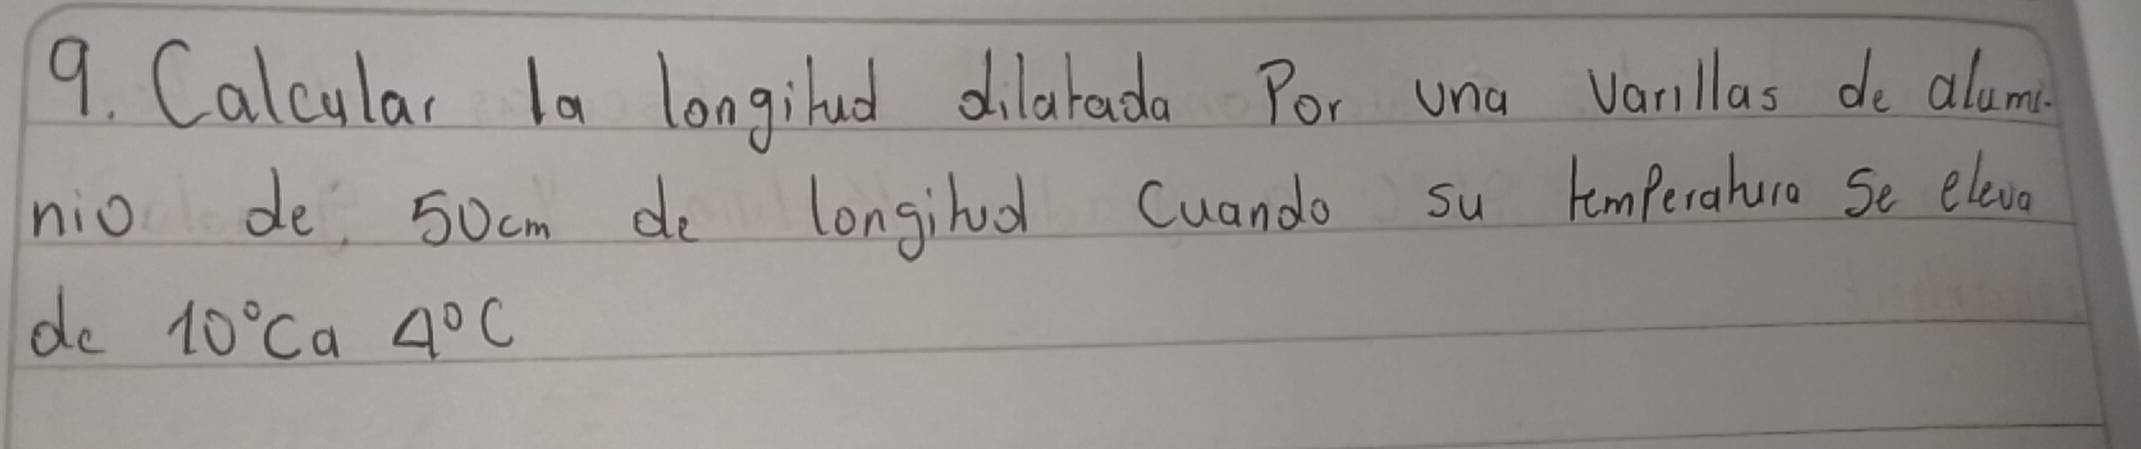 9. Calcular la longitud dilatada Por una Varillas de alumi-
nio de 50cm de longitud Cuando su temperatura Se eleva
de 10°C a 4°C